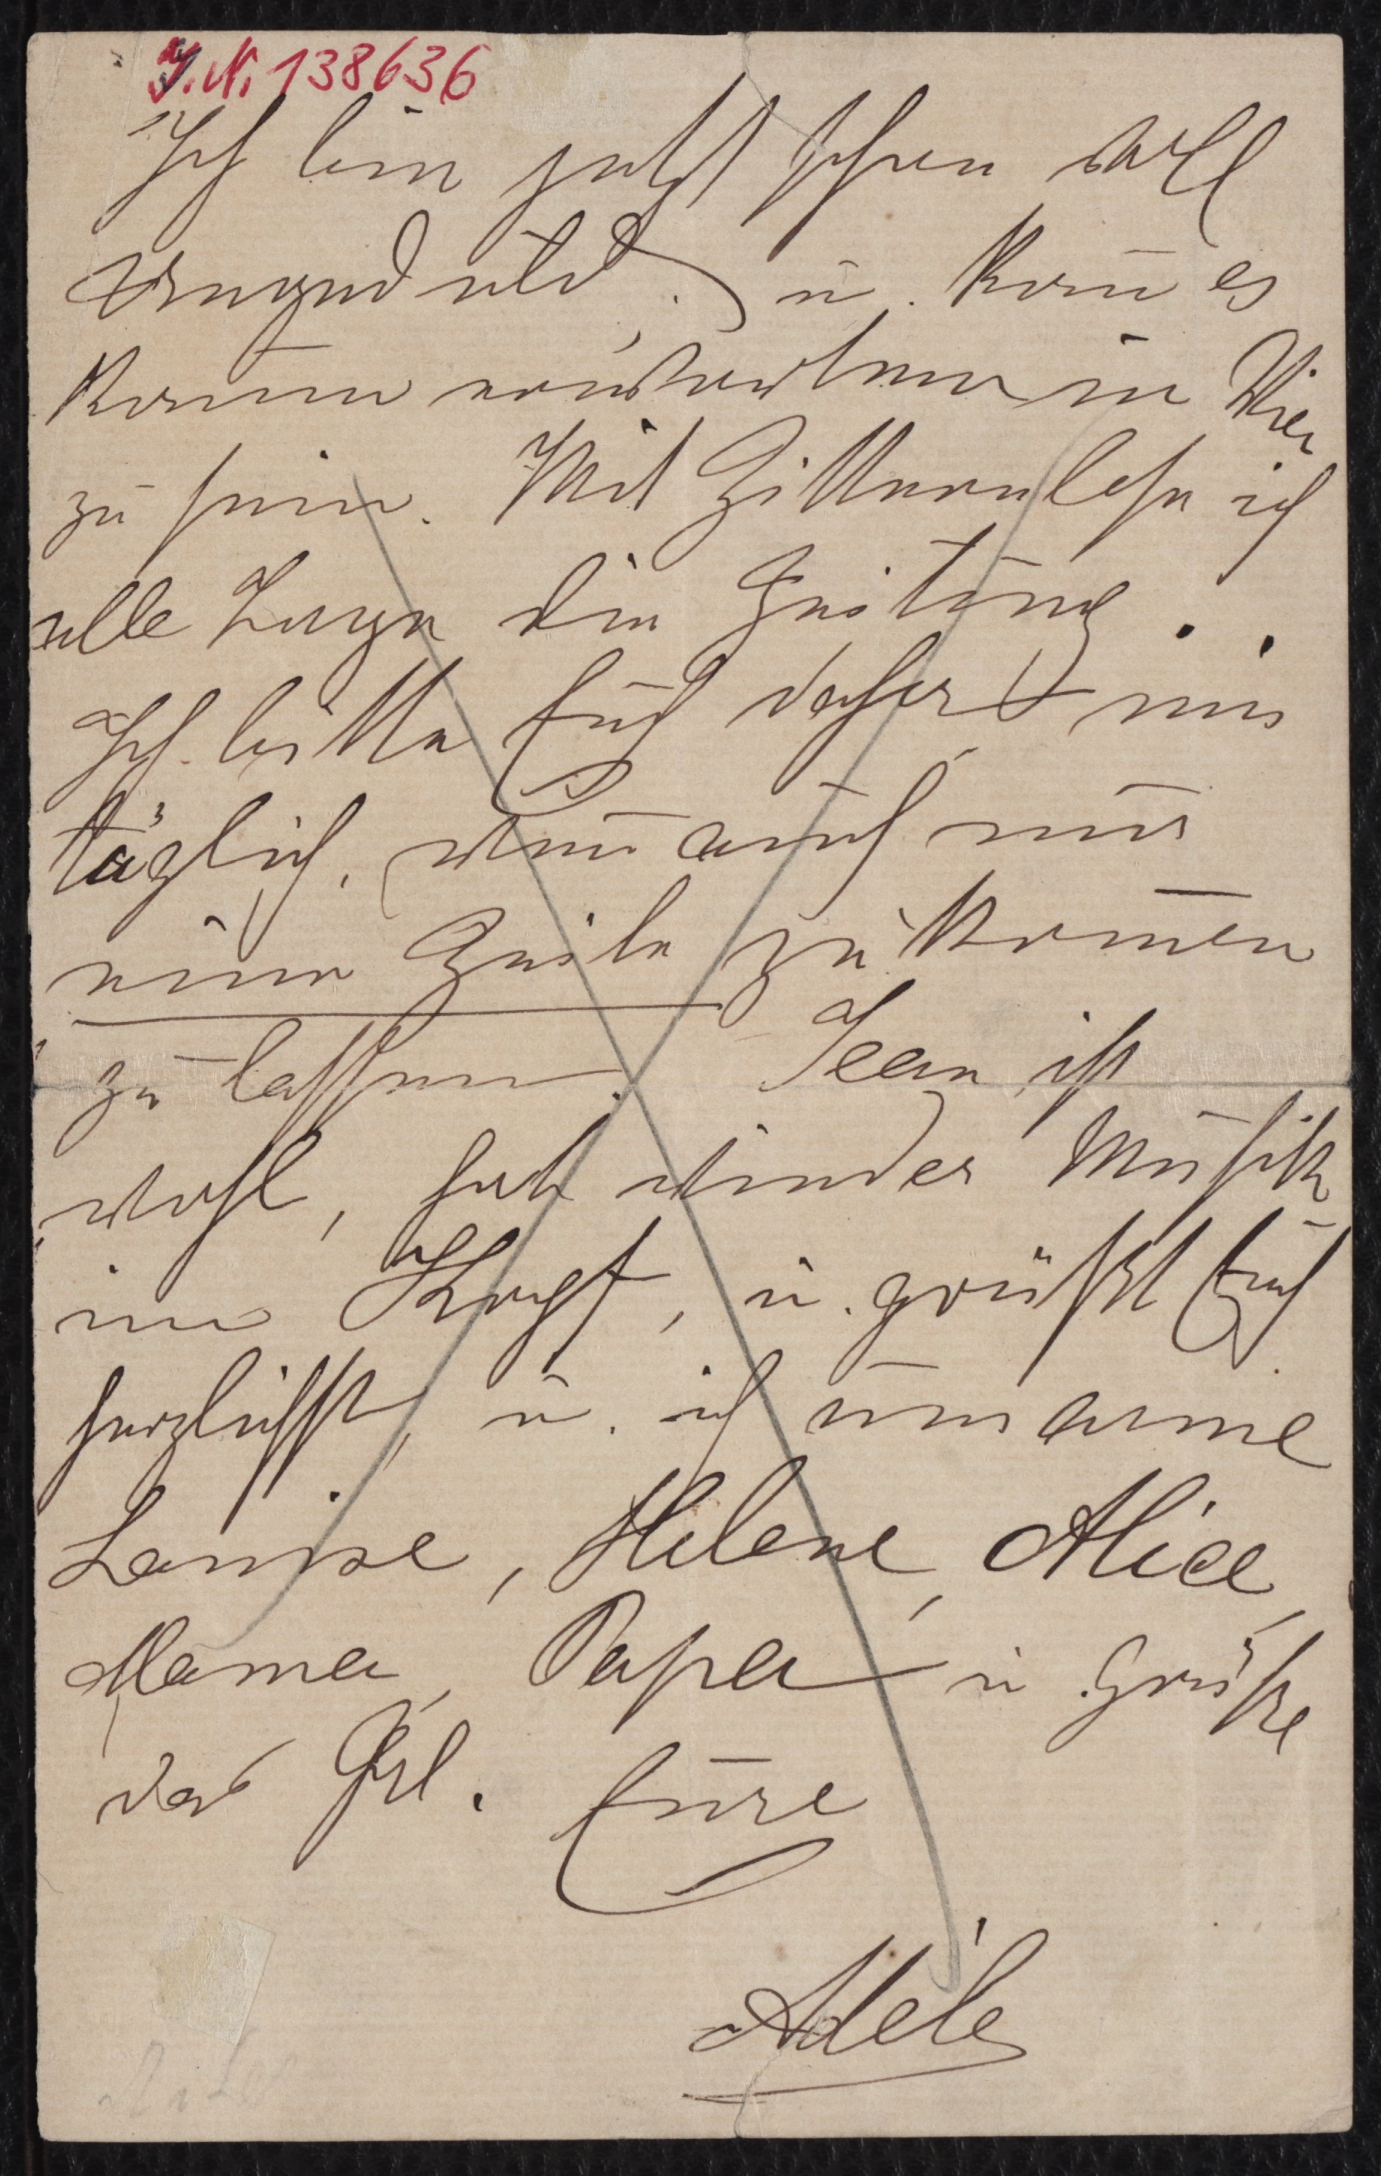 J.N. 138636
Ich bin jetzt schon voll
Ungeduld, u. kann es
kaum erwarten in Wien
zu sein. Mit Zittern lese ich
alle Tage die Zeitung . .
Ich bitte Euch daher, mir
täglich, wenn auch nur
eine Zeile zukommen
zu lassen. Jean ist
wohl, hat wieder Musik
im Kopf, u. grüßt Euch
herzlichst, u. ich umarme
Louise, Helene, Alice,
Mama, Papa u. Grüße
das Frl. Eure
Adele